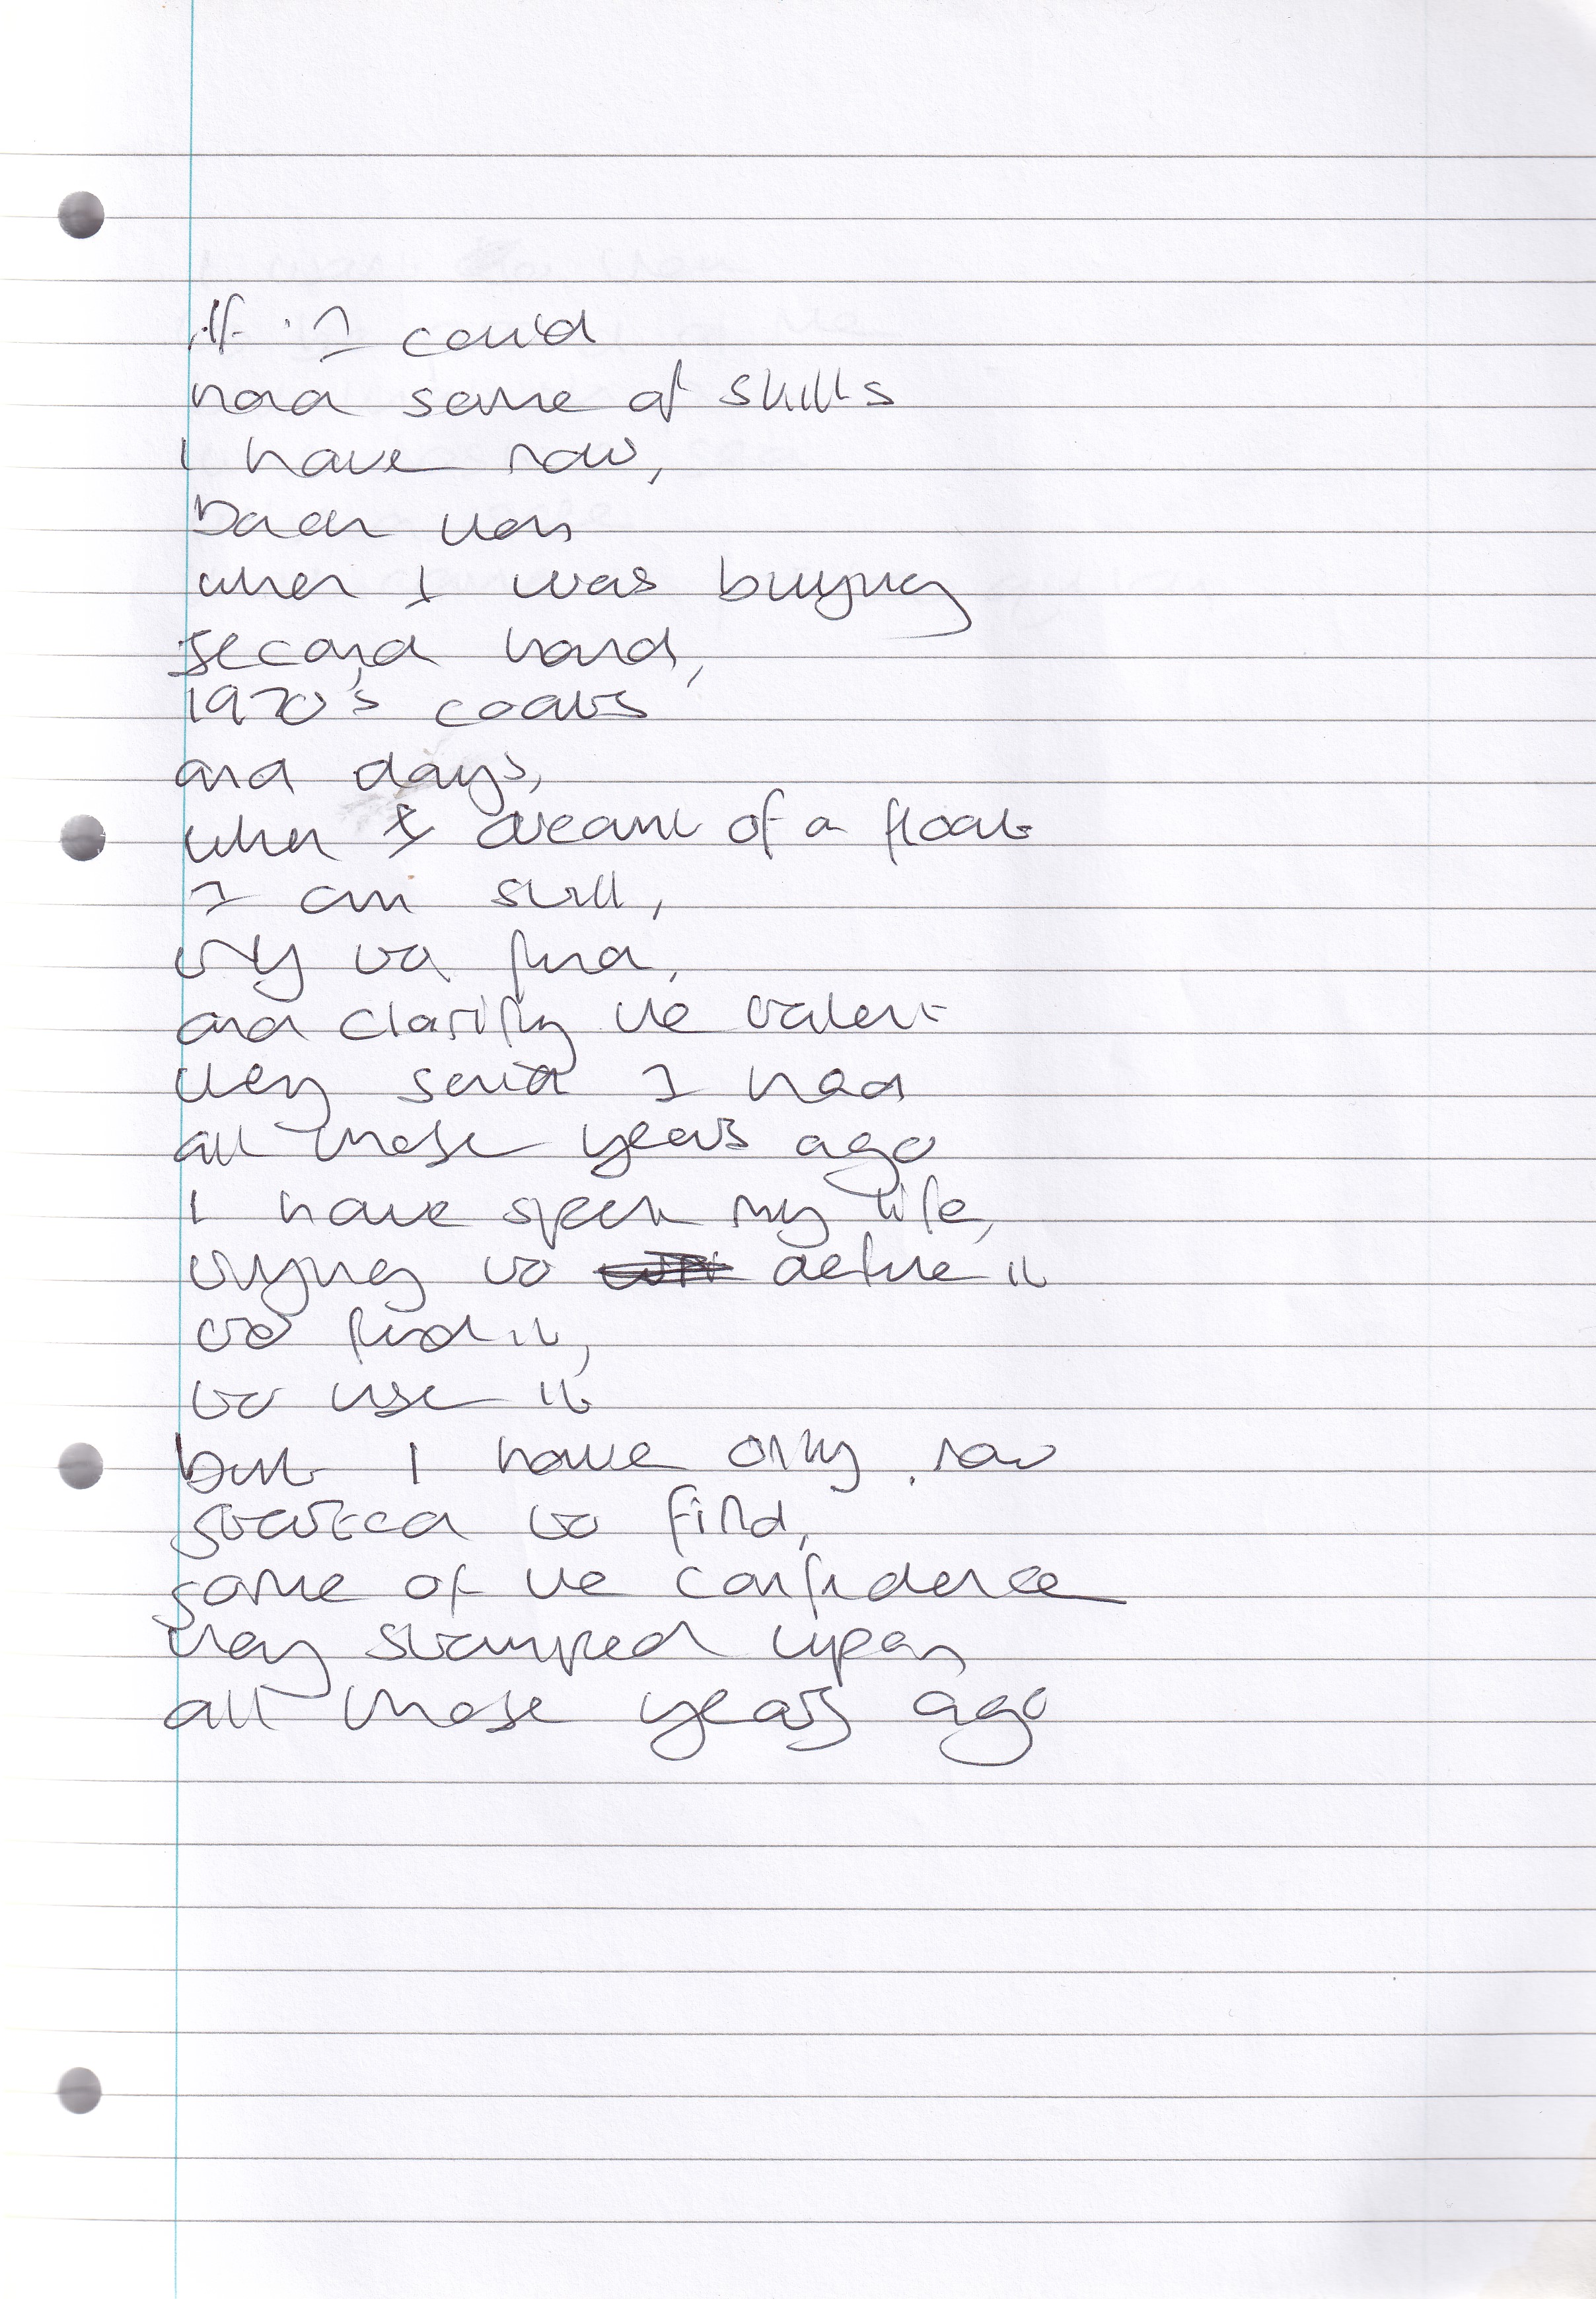 If I could
had some of skills
I have now,
back then
when I was buying
second hand,
1970's coats
and days,
when I dreamt of a float
I am still,
try to find,
and clarify the talent
they said I had
all those years ago
I have spent my life,
trying to define it
to find it,
to use it
but I have only now
started to find,
some of the confidence
they stamped upon
all those years ago